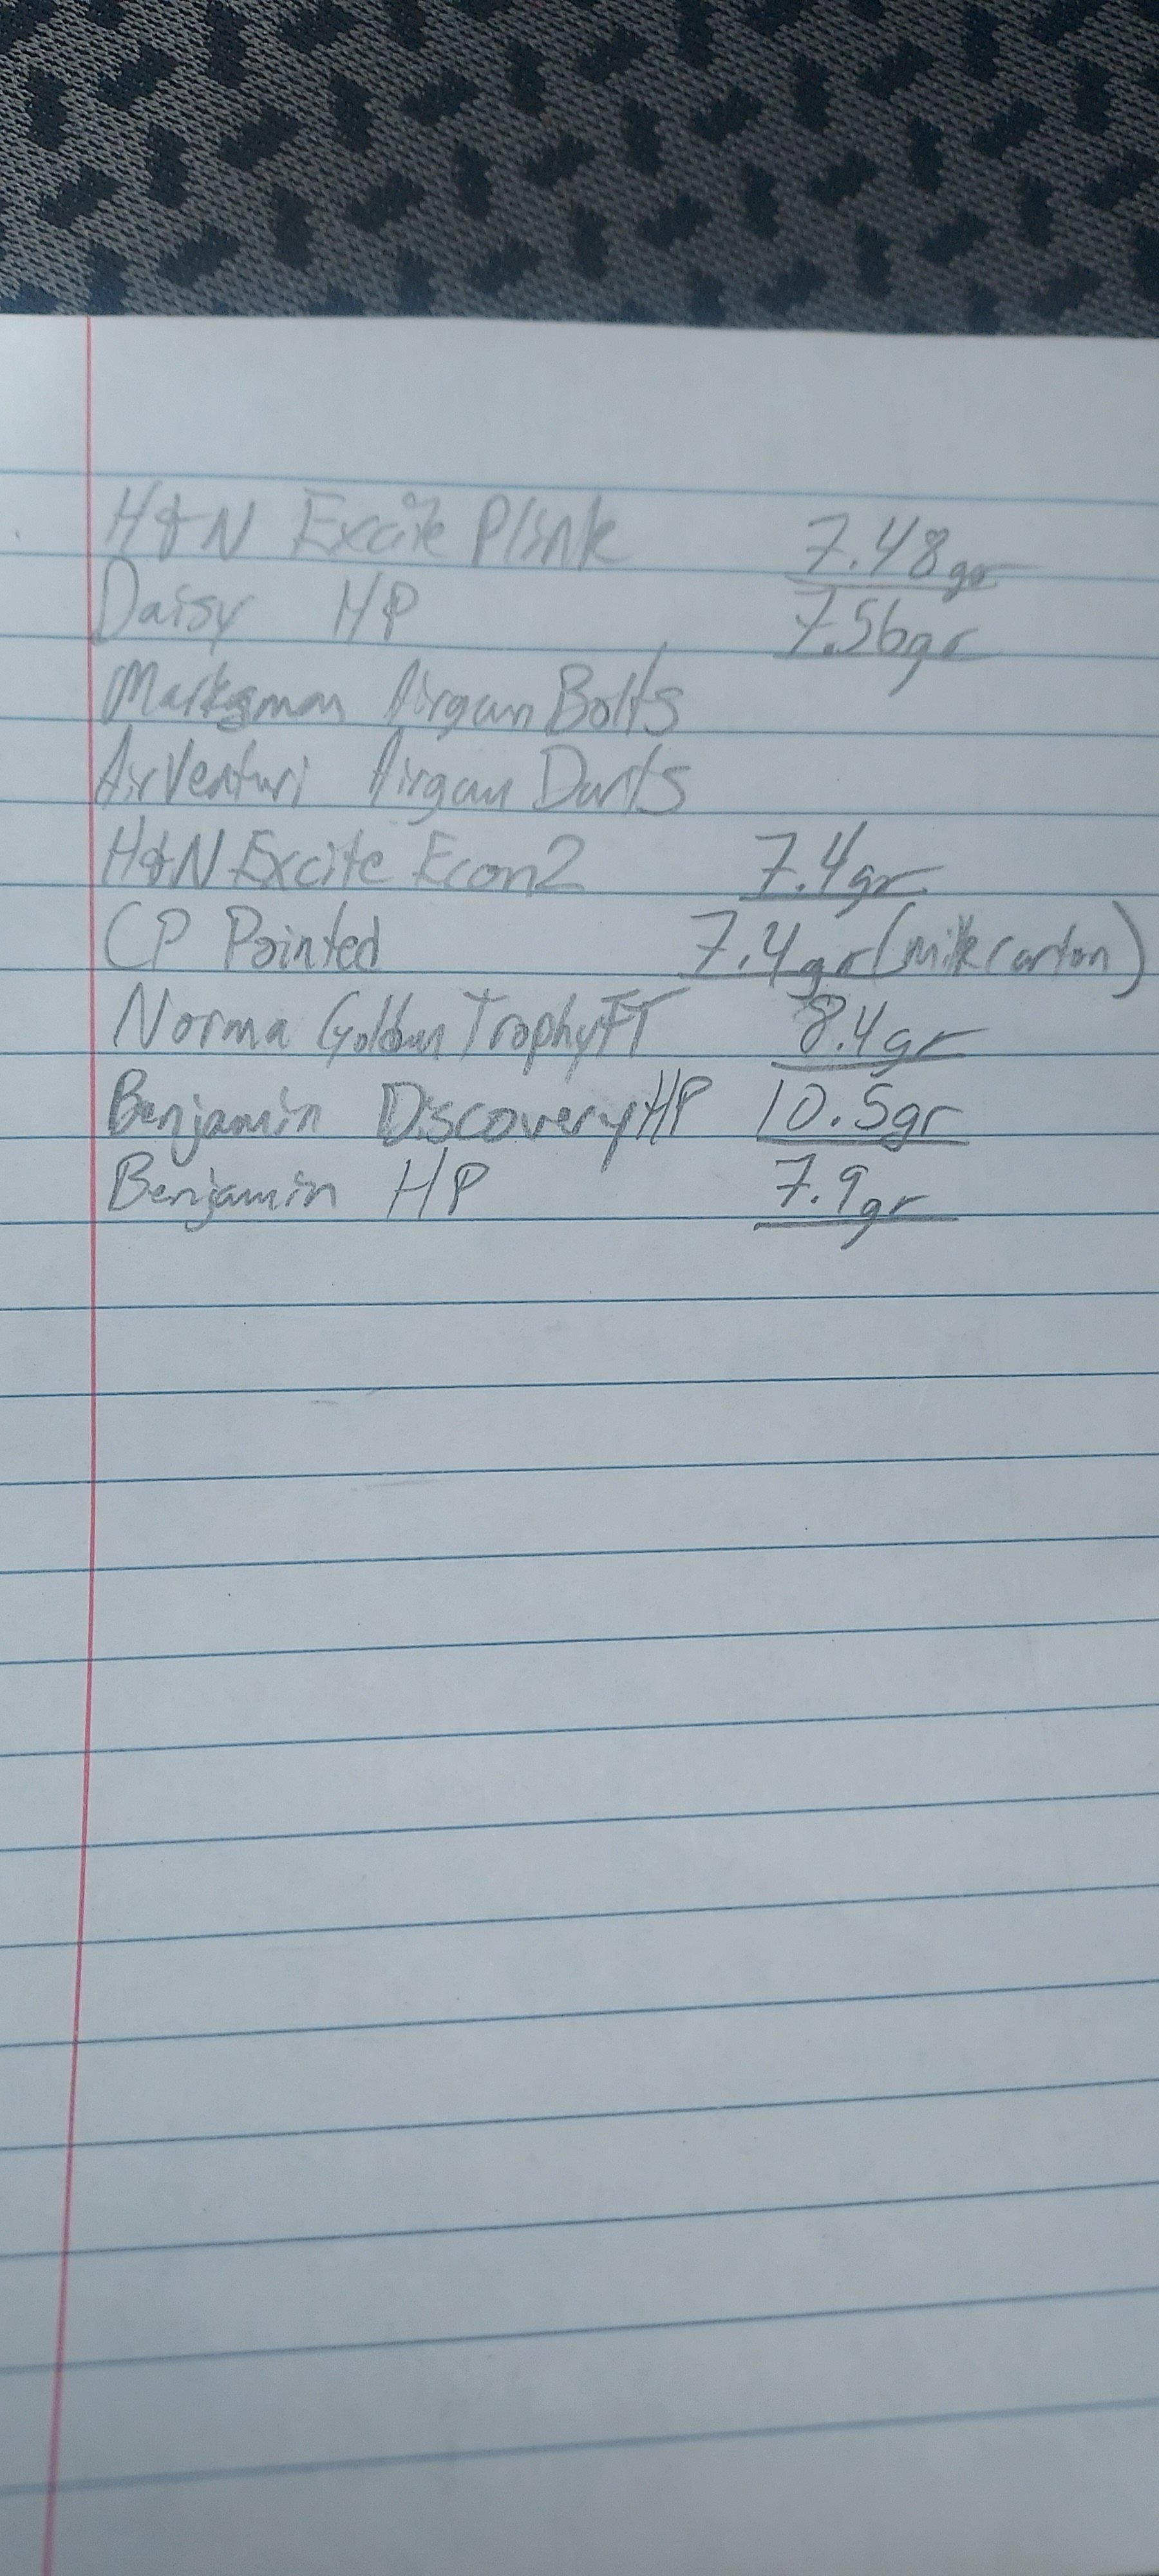 H&N Excite Plink 7.48gr
Daisy HP 7.56gr
Marksman Airgun Bolts
AirVenturi Airgun Darts
H&N Excite Econ2 7.4gr
CP Pointed 7.4gr (milk carton)
Norma Golden Trophy FT 8.4gr
Benjamin Discovery HP 10.5gr
Benjamin HP 7.9gr